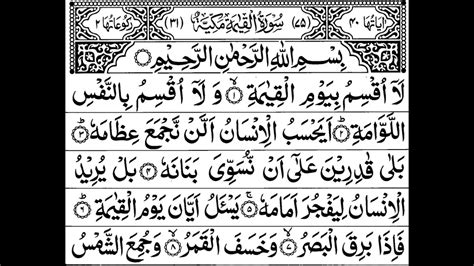 اٰيَاتُهَا ۴۰ (۷۵) سُوْرَةُ الْقِيٰمَةِ مَكِّيَّةٌ (۳۱) رُكُوْعَاتُهَا ۲
بِسْمِ اللّٰهِ الرَّحْمٰنِ الرَّحِيْمِ
لَاۤ اُقْسِمُ بِيَوْمِ الْقِيٰمَةِ ۱ وَ لَاۤ اُقْسِمُ بِالنَّفْسِ
اللَّوَّامَةِ ۲ اَيَحْسَبُ الْاِنْسَانُ اَلَّنْ نَّجْمَعَ عِظَامَهٗ ۳
بَلٰى قٰدِرِيْنَ عَلٰۤى اَنْ نُّسَوِّىَ بَنَانَهٗ ۴ بَلْ يُرِيْدُ
الْاِنْسَانُ لِيَفْجُرَ اَمَامَهٗ ۵ يَسْـَٔلُ اَيَّانَ يَوْمُ الْقِيٰمَةِ ۶
فَاِذَا بَرِقَ الْبَصَرُ ۷ وَ خَسَفَ الْقَمَرُ ۸ وَ جُمِعَ الشَّمْسُ